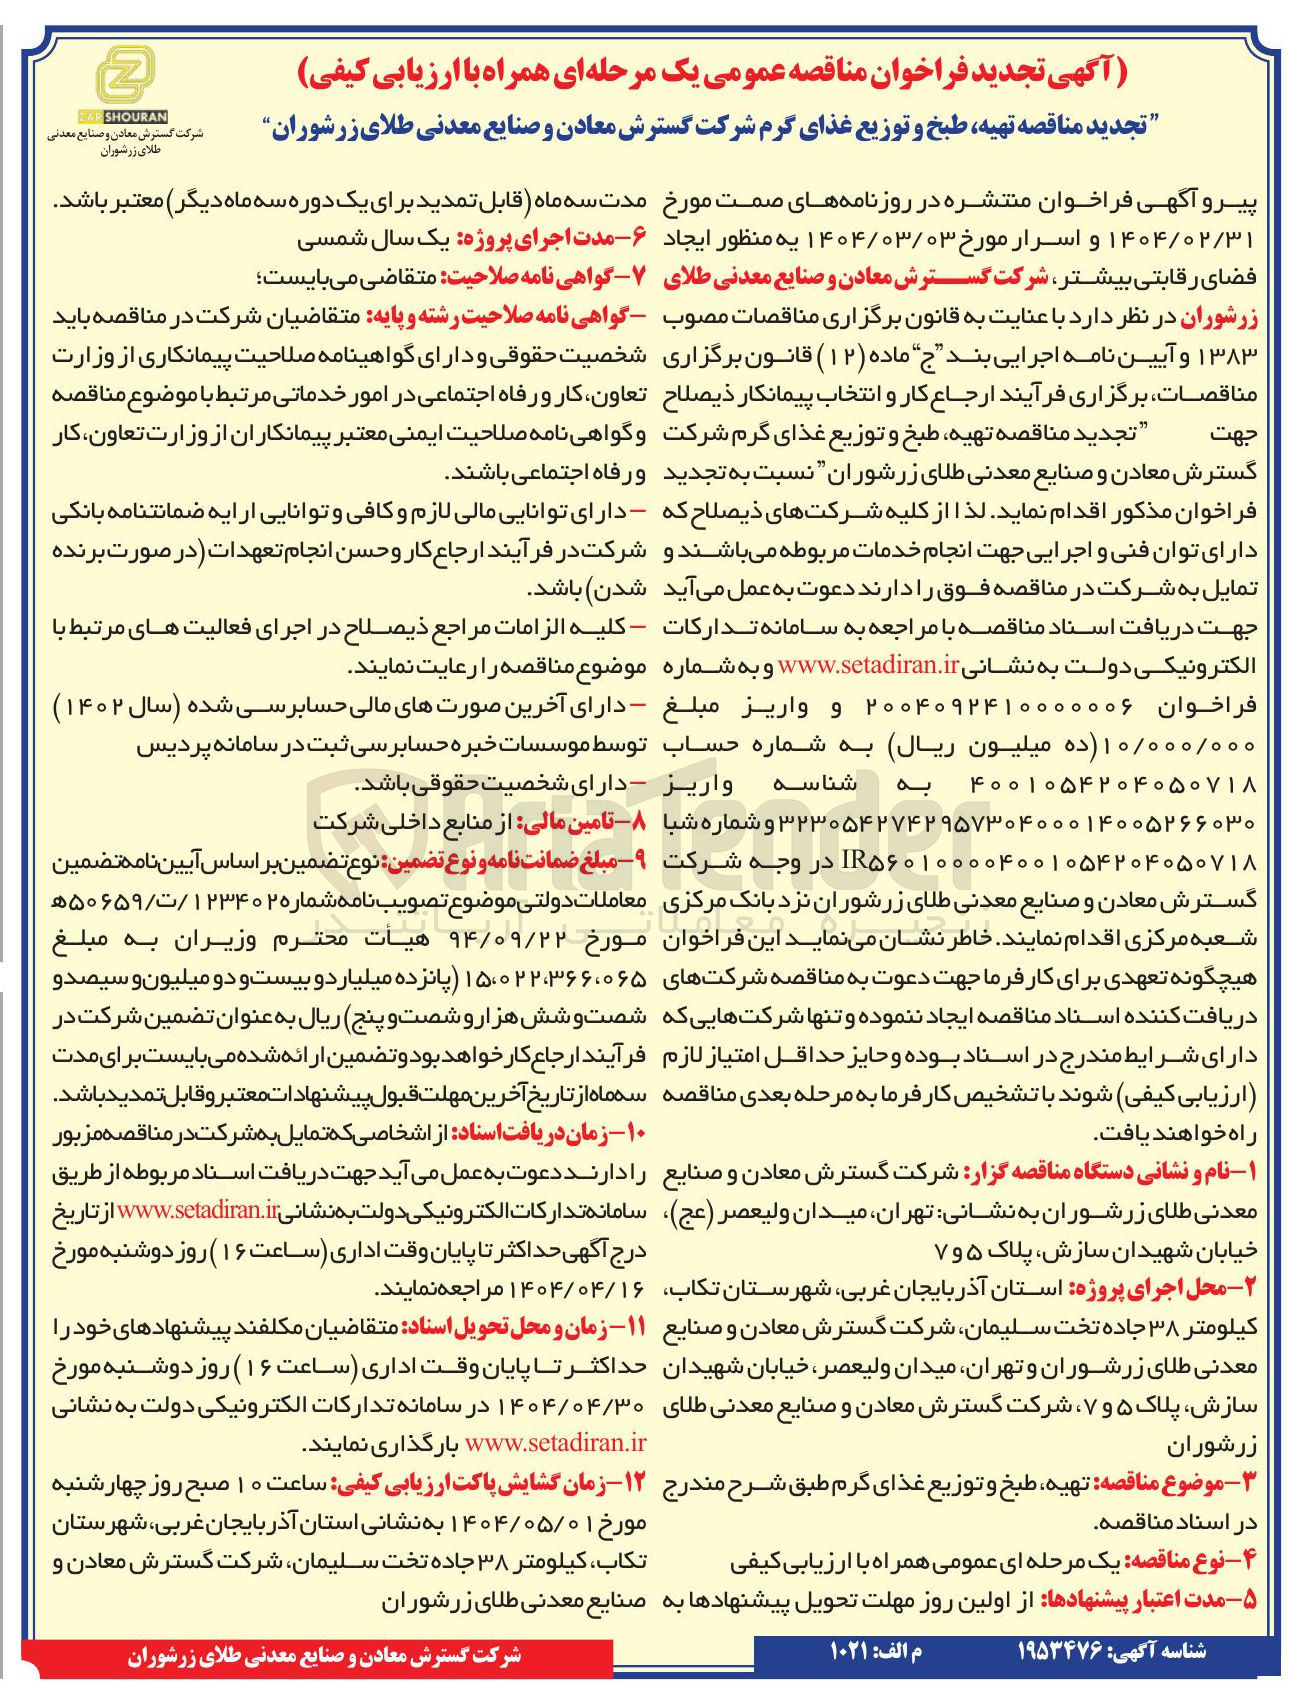 (آگهی تجدید فراخوان مناقصه عمومی یک مرحله‌ای همراه با ارزیابی کیفی)
"تجدید مناقصه تهیه، طبخ و توزیع غذای گرم شرکت گسترش معادن و صنایع معدنی طلای زرشوران"
ZARSHOURAN
شرکت گسترش معادن و صنایع معدنی
طلای زرشوران
پیرو آگهی فراخوان منتشره در روزنامه‌های صمت مورخ
۱۴۰۴/۰۲/۳۱ و اسرار مورخ ۱۴۰۴/۰۳/۰۳ به منظور ایجاد
فضای رقابتی بیشتر، شرکت گسترش معادن و صنایع معدنی طلای
زرشوران در نظر دارد با عنایت به قانون برگزاری مناقصات مصوب
۱۳۸۳ و آیین نامه اجرایی بند "ج" ماده (۱۲) قانون برگزاری
مناقصات، برگزاری فرآیند ارجاع کار و انتخاب پیمانکار ذیصلاح
جهت "تجدید مناقصه تهیه، طبخ و توزیع غذای گرم شرکت
گسترش معادن و صنایع معدنی طلای زرشوران" نسبت به تجدید
فراخوان مذکور اقدام نماید. لذا از کلیه شرکت‌های ذیصلاح که
دارای توان فنی و اجرایی جهت انجام خدمات مربوطه می‌باشند و
تمایل به شرکت در مناقصه فوق را دارند دعوت به عمل می‌آید
جهت دریافت اسناد مناقصه با مراجعه به سامانه تدارکات
الکترونیکی دولت به نشانی www.setadiran.ir و به شماره
فراخوان ۲۰۰۴۰۹۲۴۱۰۰۰۰۰۰۶ و واریز مبلغ
۱۰/۰۰۰/۰۰۰(ده میلیون ریال) به شماره حساب
۴۰۰۱۰۵۴۲۰۴۰۵۰۷۱۸ به شناسه واریز
۳۲۳۰۵۴۲۷۴۲۹۵۷۳۰۴۰۰۰۱۴۰۰۵۲۶۶۰۳۰ و شماره شبا
IR۵۶۰۱۰۰۰۰۴۰۰۱۰۵۴۲۰۴۰۵۰۷۱۸ در وجه شرکت
گسترش معادن و صنایع معدنی طلای زرشوران نزد بانک مرکزی
شعبه مرکزی اقدام نمایند. خاطر نشان می‌نماید این فراخوان
هیچگونه تعهدی برای کارفرما جهت دعوت به مناقصه شرکت‌های
دریافت کننده اسناد مناقصه ایجاد ننموده و تنها شرکت‌هایی که
دارای شرایط مندرج در اسناد بوده و حایز حداقل امتیاز لازم
(ارزیابی کیفی) شوند با تشخیص کارفرما به مرحله بعدی مناقصه
راه خواهند یافت.
۱-نام و نشانی دستگاه مناقصه گزار: شرکت گسترش معادن و صنایع
معدنی طلای زرشوران به نشانی: تهران، میدان ولیعصر (عج)،
خیابان شهیدان سازش، پلاک ۵ و ۷
۲-محل اجرای پروژه: استان آذربایجان غربی، شهرستان تکاب،
کیلومتر ۳۸ جاده تخت سلیمان، شرکت گسترش معادن و صنایع
معدنی طلای زرشوران و تهران، میدان ولیعصر، خیابان شهیدان
سازش، پلاک ۵ و ۷، شرکت گسترش معادن و صنایع معدنی طلای
زرشوران
۳-موضوع مناقصه: تهیه، طبخ و توزیع غذای گرم طبق شرح مندرج
در اسناد مناقصه.
۴-نوع مناقصه: یک مرحله ای عمومی همراه با ارزیابی کیفی
۵-مدت اعتبار پیشنهادها: از اولین روز مهلت تحویل پیشنهادها به
مدت سه ماه (قابل تمدید برای یک دوره سه ماه دیگر) معتبر باشد.
۶-مدت اجرای پروژه: یک سال شمسی
۷-گواهی نامه صلاحیت: متقاضی می‌بایست؛
-گواهی نامه صلاحیت رشته و پایه: متقاضیان شرکت در مناقصه باید
شخصیت حقوقی و دارای گواهینامه صلاحیت پیمانکاری از وزارت
تعاون، کار و رفاه اجتماعی در امور خدماتی مرتبط با موضوع مناقصه
و گواهی نامه صلاحیت ایمنی معتبر پیمانکاران از وزارت تعاون، کار
و رفاه اجتماعی باشند.
- دارای توانایی مالی لازم و کافی و توانایی ارایه ضمانتنامه بانکی
شرکت در فرآیند ارجاع کار و حسن انجام تعهدات (در صورت برنده
شدن) باشد.
- کلیه الزامات مراجع ذیصلاح در اجرای فعالیت های مرتبط با
موضوع مناقصه را رعایت نمایند.
- دارای آخرین صورت های مالی حسابرسی شده (سال ۱۴۰۲)
توسط موسسات خبره حسابرسی ثبت در سامانه پردیس
- دارای شخصیت حقوقی باشد.
۸-تامین مالی: از منابع داخلی شرکت
۹-مبلغ ضمانت نامه و نوع تضمین: نوع تضمین بر اساس آیین نامه تضمین
معاملات دولتی موضوع تصویب نامه شماره ۱۲۳۴۰۲/ت/۵۰۶۵۹ه
مورخ ۹۴/۰۹/۲۲ هیأت محترم وزیران به مبلغ
۱۵،۰۲۲،۳۶۶،۰۶۵ (پانزده میلیارد و بیست و دو میلیون و سیصد و
شصت و شش هزار و شصت و پنج) ریال به عنوان تضمین شرکت در
فرآیند ارجاع کار خواهد بود و تضمین ارائه شده می بایست برای مدت
سه ماه از تاریخ آخرین مهلت قبول پیشنهادات معتبر و قابل تمدید باشد.
۱۰-زمان دریافت اسناد: از اشخاصی که تمایل به شرکت در مناقصه مزبور
را دارند دعوت به عمل می آید جهت دریافت اسناد مربوطه از طریق
سامانه تدارکات الکترونیکی دولت به نشانی www.setadiran.ir از تاریخ
درج آگهی حداکثر تا پایان وقت اداری (ساعت ۱۶) روز دوشنبه مورخ
۱۴۰۴/۰۴/۱۶ مراجعه نمایند.
۱۱- زمان و محل تحویل اسناد: متقاضیان مکلفند پیشنهادهای خود را
حداکثر تا پایان وقت اداری (ساعت ۱۶) روز دوشنبه مورخ
۱۴۰۴/۰۴/۳۰ در سامانه تدارکات الکترونیکی دولت به نشانی
www.setadiran.ir بارگذاری نمایند.
۱۲-زمان گشایش پاکت ارزیابی کیفی: ساعت ۱۰ صبح روز چهارشنبه
مورخ ۱۴۰۴/۰۵/۰۱ به نشانی استان آذربایجان غربی، شهرستان
تکاب، کیلومتر ۳۸ جاده تخت سلیمان، شرکت گسترش معادن و
صنایع معدنی طلای زرشوران
AriaTender
زنجیره معاملاتی آریاتندر
شناسه آگهی: ۱۹۵۳۴۷۶ م الف: ۱۰۲۱
شرکت گسترش معادن و صنایع معدنی طلای زرشوران